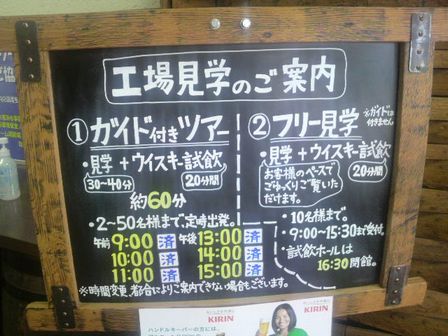 工場見学のご案内
①ガイド付きツアー
・見学+ウイスキー試飲
30~40分 20分間
約60分
・2~50名様まで、定時出発。
午前 9:00 済 午後 13:00 済
10:00 済 14:00 済
11:00 済 15:00 済
※時間変更、都合によりご案内できない場合もございます。
②フリー見学
※ガイドは付きません
・見学+ウイスキー試飲
お客様のペースでごゆっくりご覧いただけます。
20分間
・10名様まで。
・9:00~15:30まで受付。
・試飲ホールは
16:30 閉館。
KIRIN
KIRIN
ハンドルキーパーの方には、